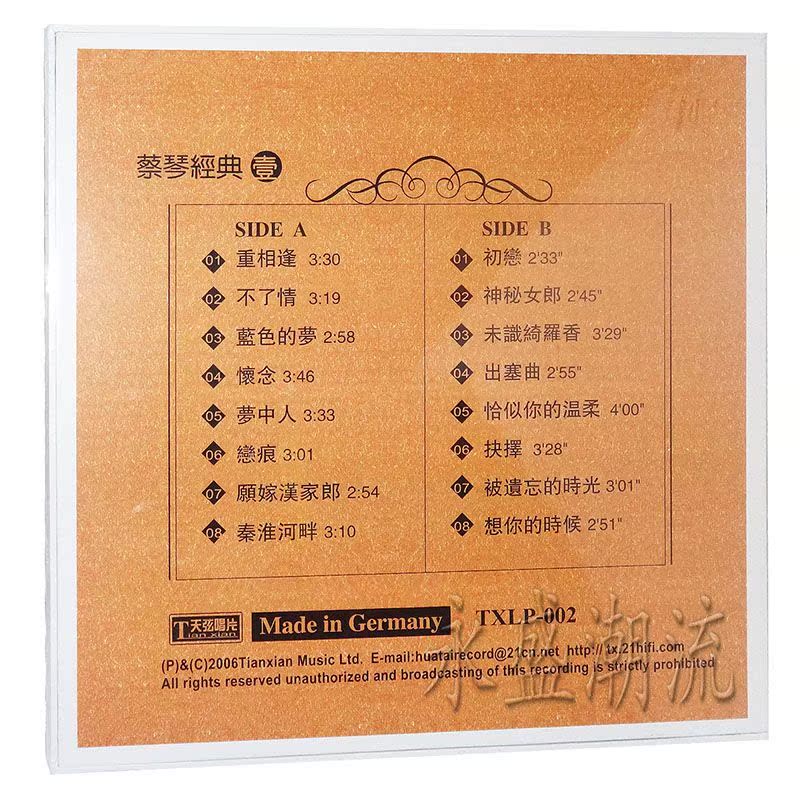 蔡琴經典 壹
SIDE A
01 重相逢 3:30
02 不了情 3:19
03 藍色的夢 2:58
04 懷念 3:46
05 夢中人 3:33
06 戀痕 3:01
07 願嫁漢家郎 2:54
08 秦淮河畔 3:10
SIDE B
01 初戀 2'33"
02 神秘女郎 2'45"
03 未識綺羅香 3'29"
04 出塞曲 2'55"
05 恰似你的温柔 4'00"
06 抉擇 3'28"
07 被遺忘的時光 3'01"
08 想你的時候 2'51"
天弦唱片
Tian xian
Made in Germany
TXLP-002
(P)&(C)2006Tianxian Music Ltd. E-mail:huatairecord@21cn.net http://tx.21hifi.com
All rights reserved unauthorized and broadcasting of this recording is strictly prohibited
永盛潮流